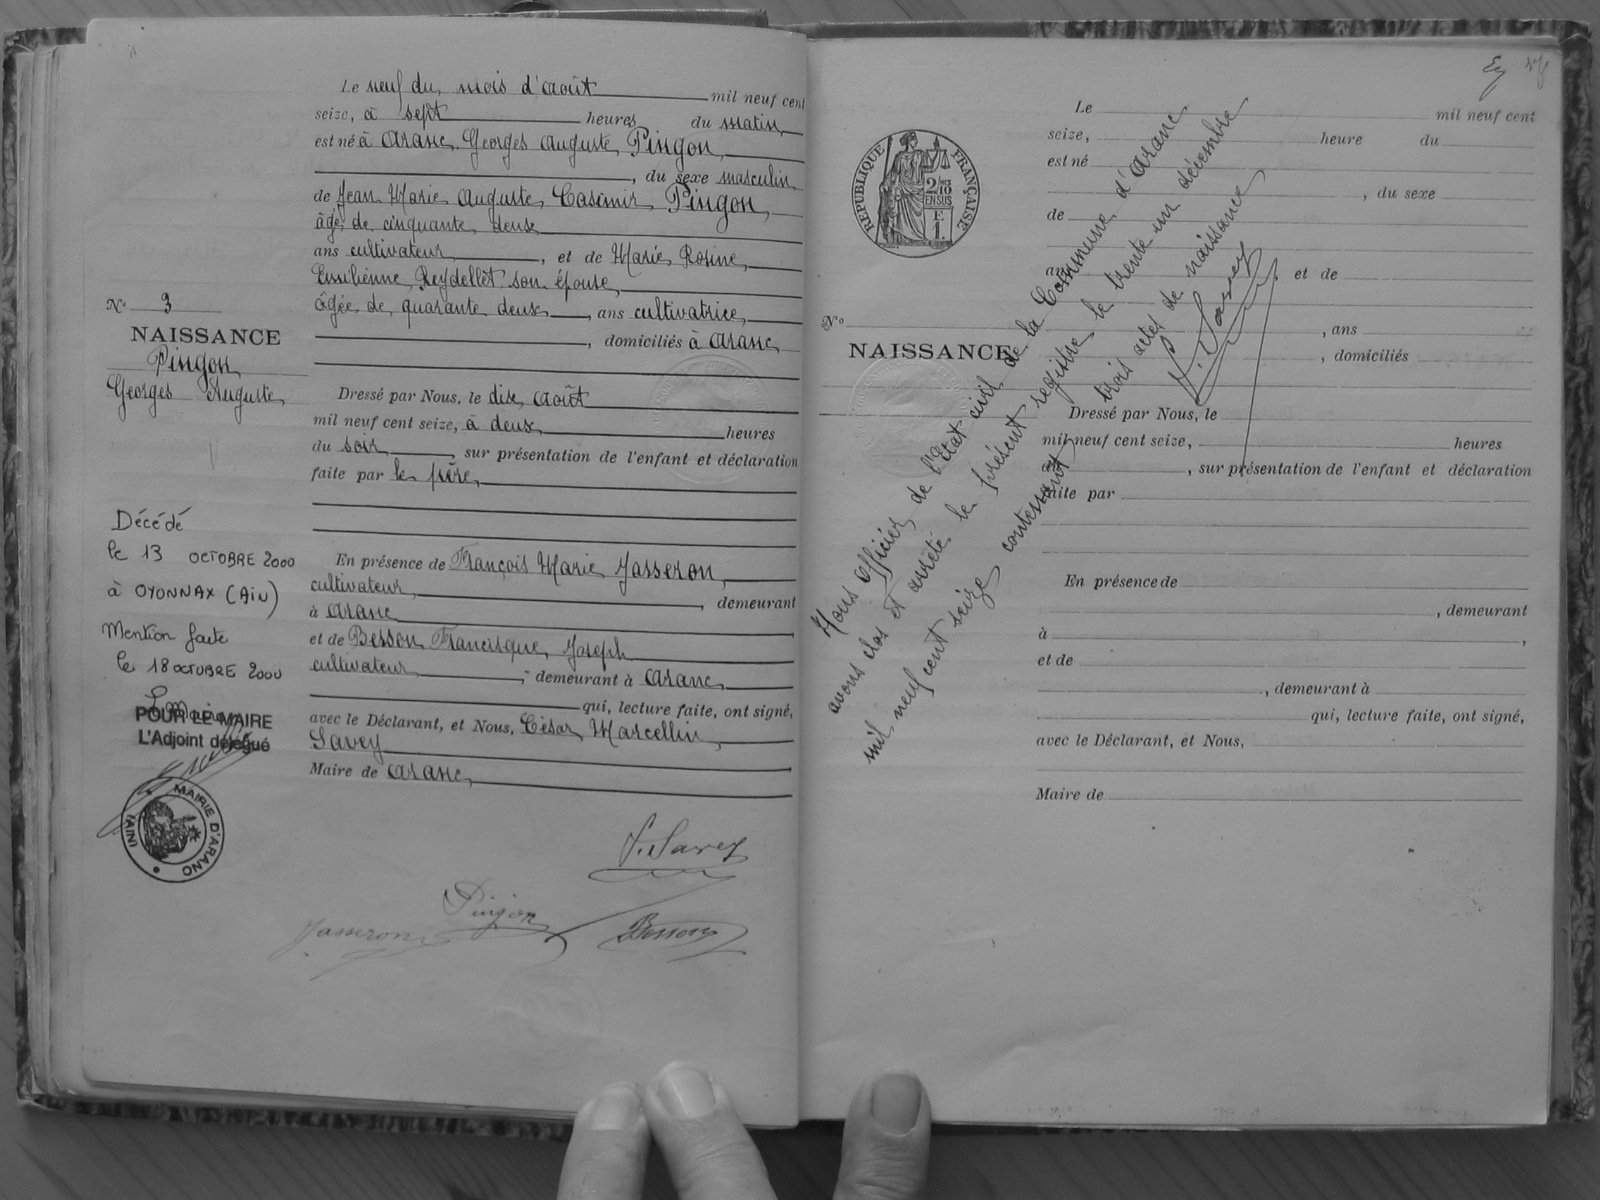 Le neuf du mois d'août mil neuf cent
seize, à sept heures du matin
est né à Aranc Georges Auguste Pingon,
, du sexe masculin
de Jean Marie Auguste Casimir Pingon,
âgé de cinquante deux
ans cultivateur, et de Marie Rosine
Emilienne Reydellet son épouse,
âgée de quarante deux ans cultivatrice,
, domiciliés à Aranc
N° 3
NAISSANCE
Pingon
Georges Auguste
Dressé par Nous, le dix août
mil neuf cent seize, à deux heures
du soir, sur présentation de l'enfant et déclaration
faite par le père
Décédé
le 13 OCTOBRE 2000
à OYONNAX (AIN)
Mention faite
le 18 OCTOBRE 2000
POUR LE MAIRE
L'Adjoint délégué
MAIRIE D'ARANC
(AIN)
En présence de François Marie Jasseron,
cultivateur, demeurant
à Aranc
et de Besson Francisque Joseph
cultivateur, demeurant à Aranc
qui, lecture faite, ont signé,
avec le Déclarant, et Nous, César Marcellin
Savey
Maire de Aranc
Savey
Pingon
Jasseron
Besson
RÉPUBLIQUE FRANÇAISE
2/10
EN SUS
Le mil neuf cent
seize, heure du
est né
, du sexe
de
, et de
N°
, ans
NAISSANCE
, domiciliés
Dressé par Nous, le
mil neuf cent seize, heures
, sur présentation de l'enfant et déclaration
faite par
En présence de
, demeurant
à ,
et de
, demeurant à
qui, lecture faite, ont signé,
avec le Déclarant, et Nous,
Maire de
Nous officier de l'état civil de la Commune d'Aranc
avons clos et arrêté le présent registre le trente un décembre
mil neuf cent seize contenant trois actes de naissance
Savey